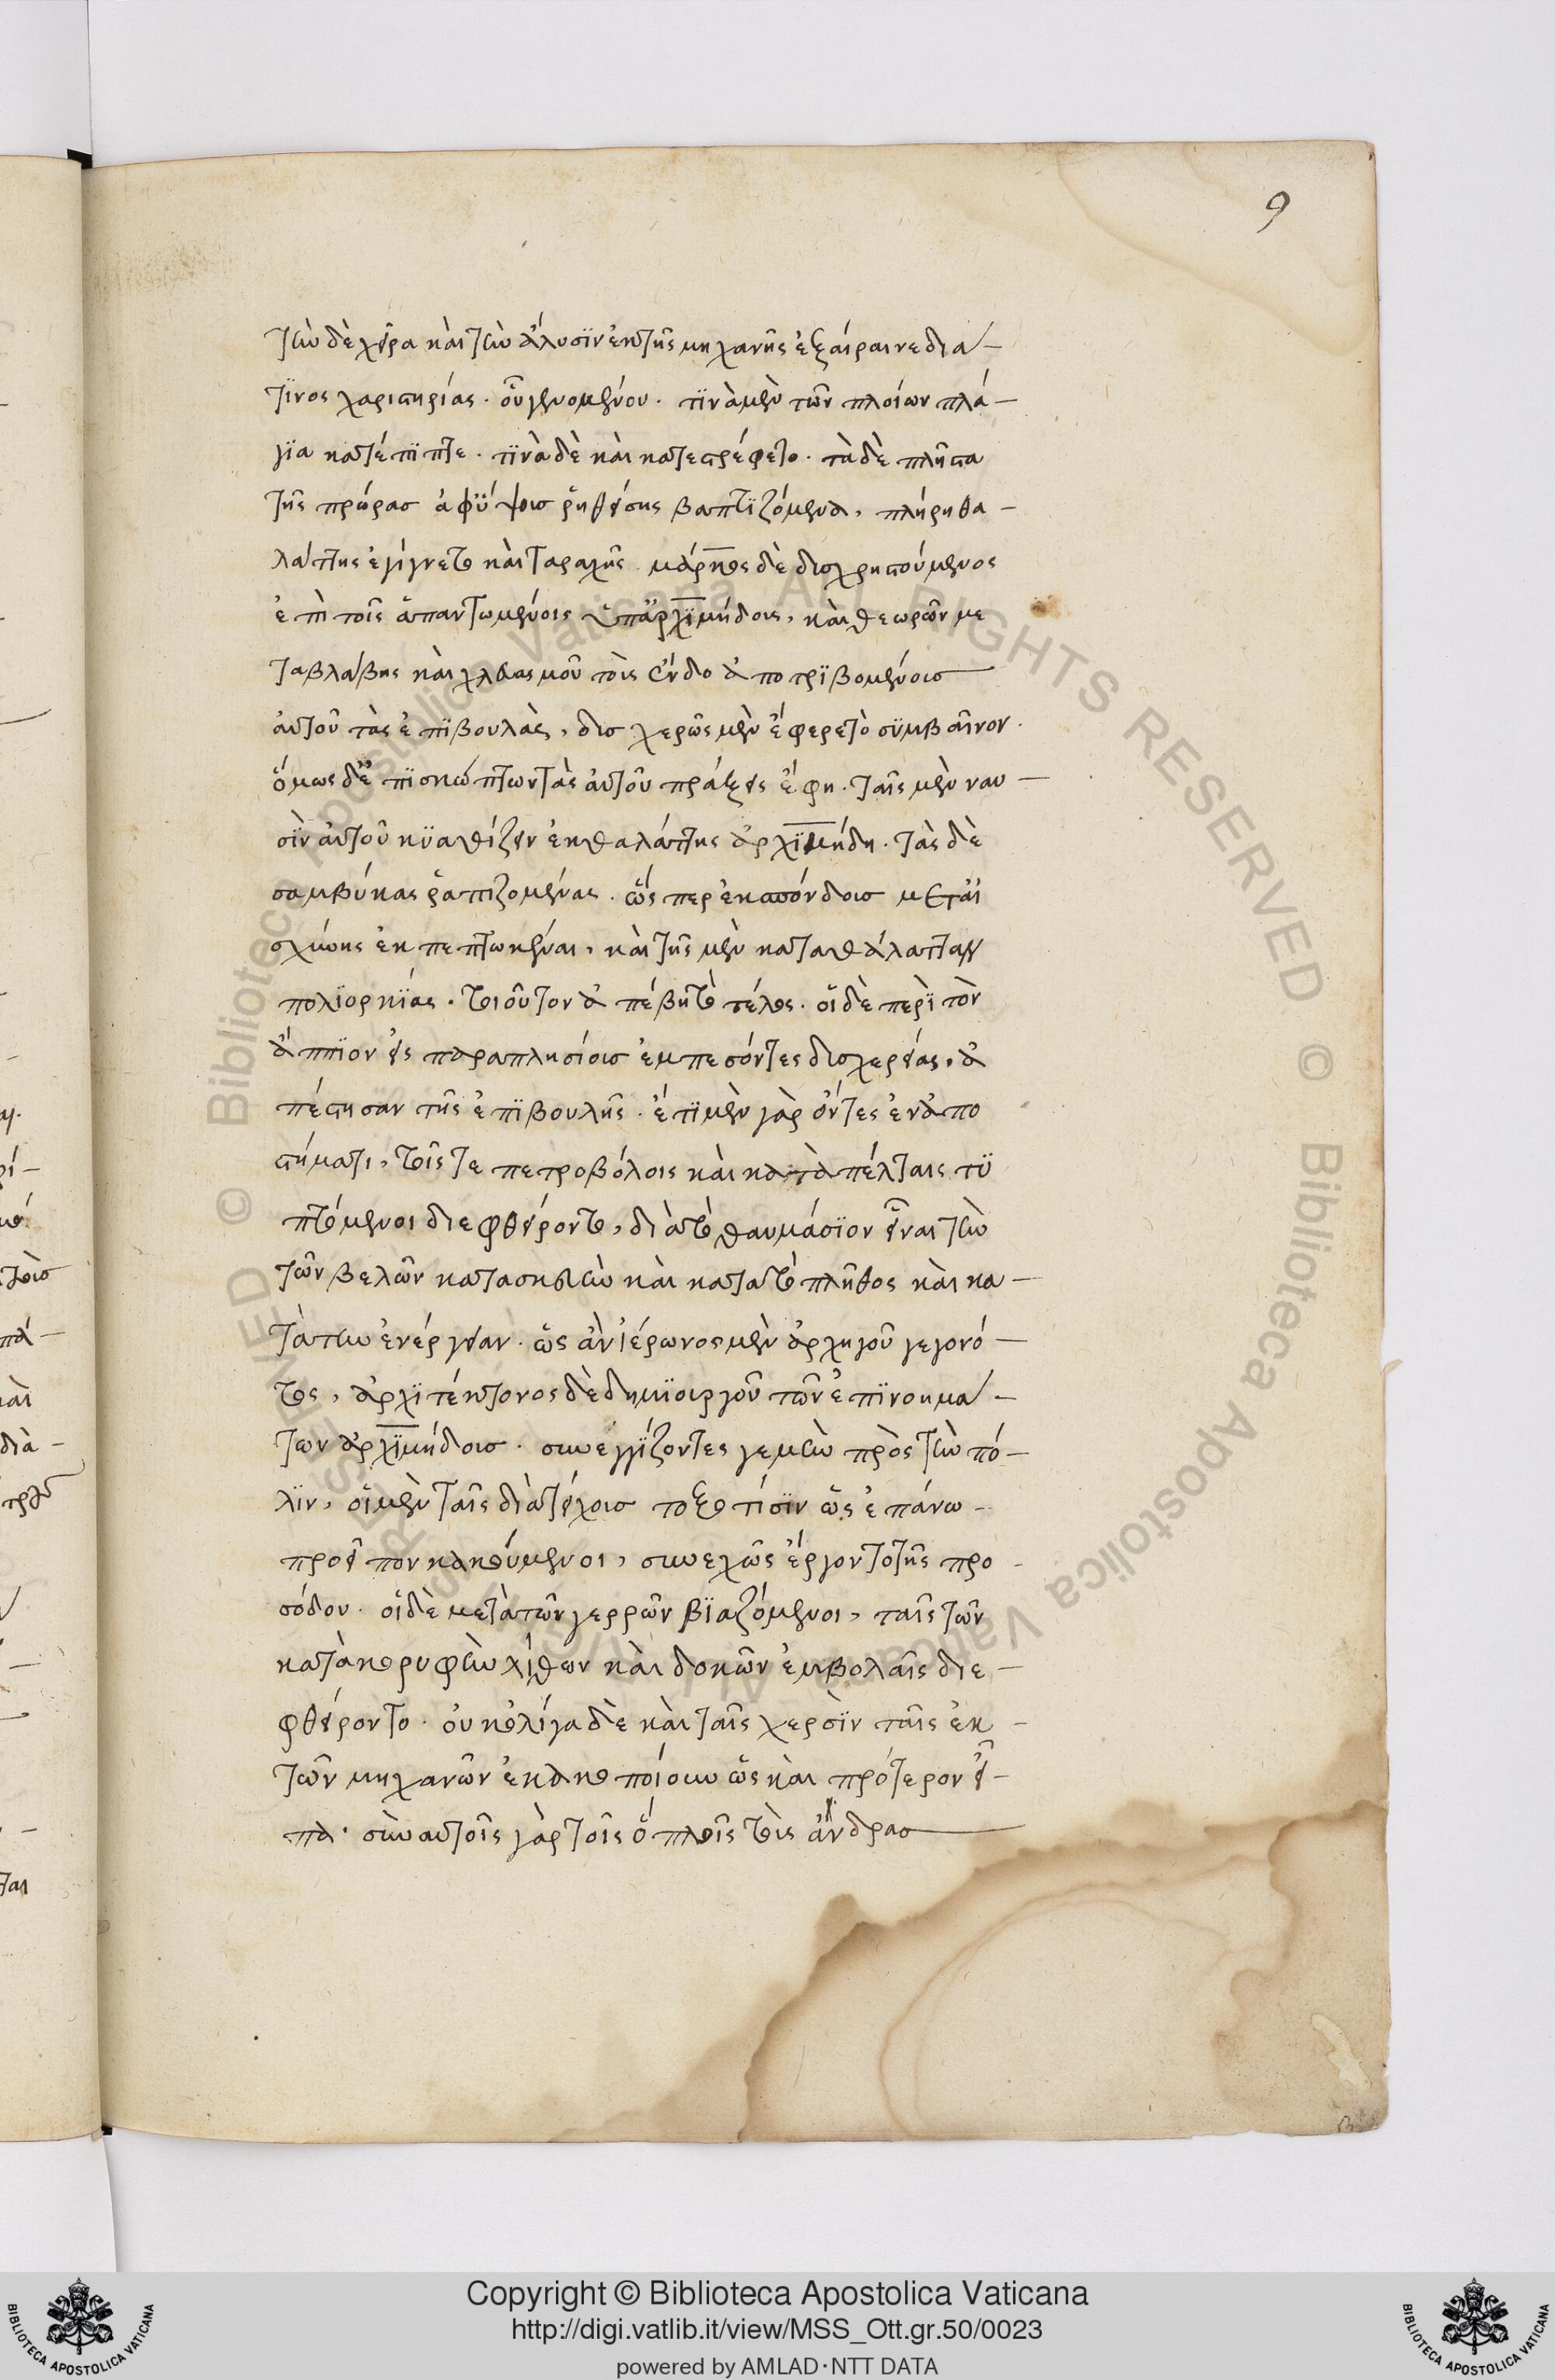 9
τὴν δὲ χεῖρα καὶ τὴν ἅλυσϊν ἐκ τῆς μηχανῆς ἐξαίραινε διά
τϊνος χαριστηρίας. οὗ γενομένου. τϊνὰ μὲν τῶν πλοίων πλά-
γϊα κατέπϊπτε. τϊνὰ δὲ καὶ κατεστρέφετο. τὰ δὲ πλῆστα
τῆς πρώρασ ἀφ' ὕψους ῥηθείσης βαπτϊζόμενα, πλήρη θα-
λάττης ἐγίγνετο καὶ ταραχῆς. μάρκος δὲ δυσχρηστούμενος
ἐπὶ τοῖς ἀπαντωμένοις ὑπ' ἀρχϊμήδους, καὶ θεωρῶν με
τὰ βλάβης καὶ χλευασμοῦ τοὺς ἔνδο ἀποτρϊβομένουσ
αὐτοῦ τὰς ἐπϊβουλὰς, δυσχερῶς μὲν ἔφερε τὸ σϋμβαῖνον.
ὅμως δ' ἐπϊσκώπτων τὰς αὑτοῦ πράξεις ἔφη. ταῖς μὲν ναυ-
σϊν αὐτοῦ κϋαθίζειν ἐκ θαλάττης ἀρχϊμήδη. τὰς δὲ
σαμβύκας ῥαπιζομένας. ὥσπερ ἐκσπόνδουσ μετ' αἰ
σχύνης ἐκπεπτωκέναι, καὶ τῆς μὲν κατὰ θάλατταν
πολϊορκϊας. τοιοῦτον ἀπέβη τὸ τέλος. οἱ δὲ περϊ τὸν
ἄππϊον εἰς παραπλησίουσ ἐμπεσόντες δυσχερείας, ἀ
πέστησαν τῆς ἐπϊβουλῆς. ἔτϊ μὲν γὰρ ὄντες ἐν ἀπο
στήματι, τοῖς τε πετροβόλοις καὶ καταπέλταις τϋ
πτόμενοι διεφθείροντο, διὰ τὸ θαυμάσϊον εἶναι τὴν
τῶν βελῶν κατασκευὴν καὶ κατὰ τὸ πλῆθος καὶ κα-
τὰ τὴν ἐνέργειαν. ὡς ἂν ἱέρωνος μὲν ἀρχηγοῦ γεγονό-
τος, ἀρχϊτέκτονος δὲ δημϊουργοῦ τῶν ἐπϊνοημά-
των ἀρχϊμήδουσ. συνεγγϊζοντες γε μὴν πρὸς τὴν πό-
λϊν, οἱ μὲν ταῖς διὰ τείχουσ τοξοτίσϊν ὡς ἐπάνω
προεῖπον κακούμενοι, συνεχῶς ἔργοντο τῆς προ
σόδου. οἱ δὲ μετὰ τῶν γερρῶν βϊαζόμενοι, ταῖς τῶν
κατὰ κορυφὴν λίθων καὶ δοκῶν ἐμβολαῖς διε-
φθείροντο. οὐκ ὀλίγα δὲ καὶ ταῖς χερσϊν ταῖς ἐκ
τῶν μηχανῶν ἐκακοποίουν ὡς καὶ πρότερον εἶ-
πα. σὺν αὐτοῖς γὰρ τοῖς ὅπλοις τοὺς ἄνδρασ
Copyright © Biblioteca Apostolica Vaticana
http://digi.vatlib.it/view/MSS_Ott.gr.50/0023
powered by AMLAD·NTT DATA